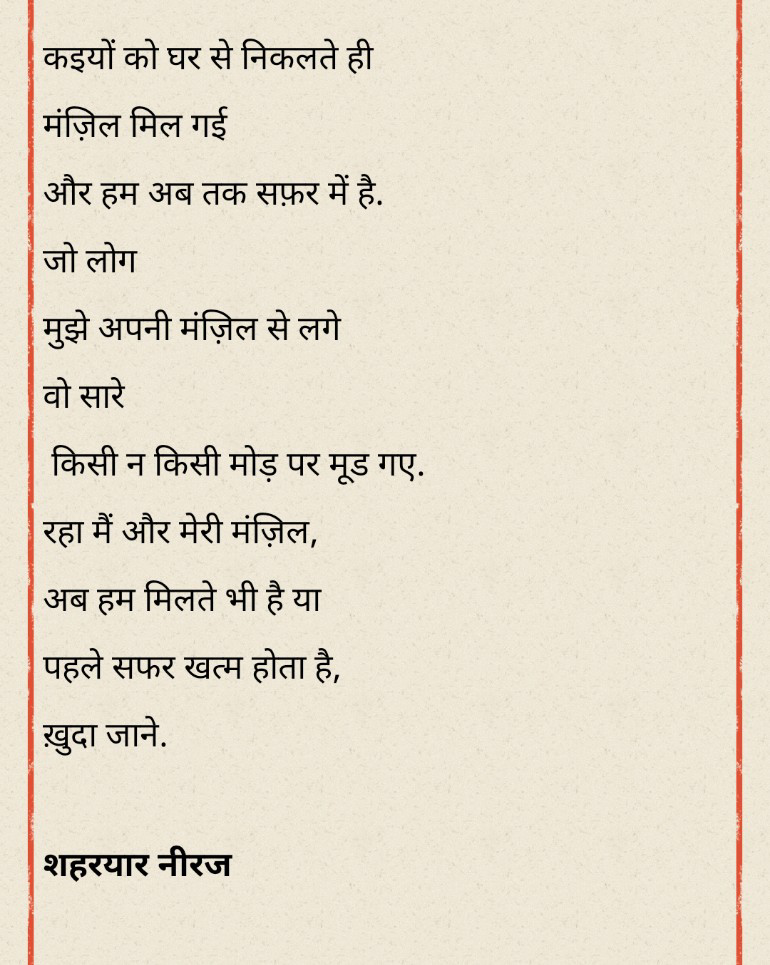 कइयों को घर से निकलते ही
मंज़िल मिल गई
और हम अब तक सफ़र में है.
जो लोग
मुझे अपनी मंज़िल से लगे
वो सारे
किसी न किसी मोड़ पर मूड गए.
रहा मैं और मेरी मंज़िल,
अब हम मिलते भी है या
पहले सफर खत्म होता है,
ख़ुदा जाने.
शहरयार नीरज